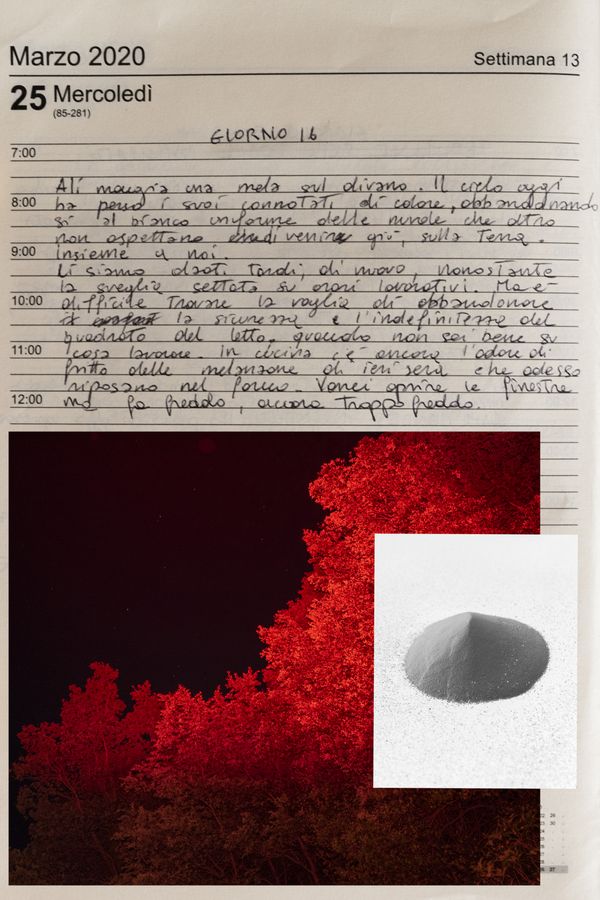 Marzo 2020
Settimana 13
25 Mercoledì
(85-281)
GIORNO 16
7:00
Ali mangia una mela sul divano. Il cielo oggi
8:00 ha perso i suoi connotati di colore, abbandonando
si al bianco uniforme delle nuvole che altro
non aspettano di venire giù, sulla Terra.
9:00 insieme a noi.
Ci siamo alzati tardi, di nuovo, nonostante
la sveglia settata su orari lavorativi. Ma è
10:00 difficile trovare la voglia di abbandonare
la sicurezza e l'indefinitezza del
quadrato del letto, quando non sai bene su
11:00 cosa lavorare. In cucina c'è ancora l'odore di
fritto delle melanzane di ieri sera che adesso
riposano nel forno. Vorrei aprire le finestre
12:00 ma fa freddo, ancora troppo freddo.